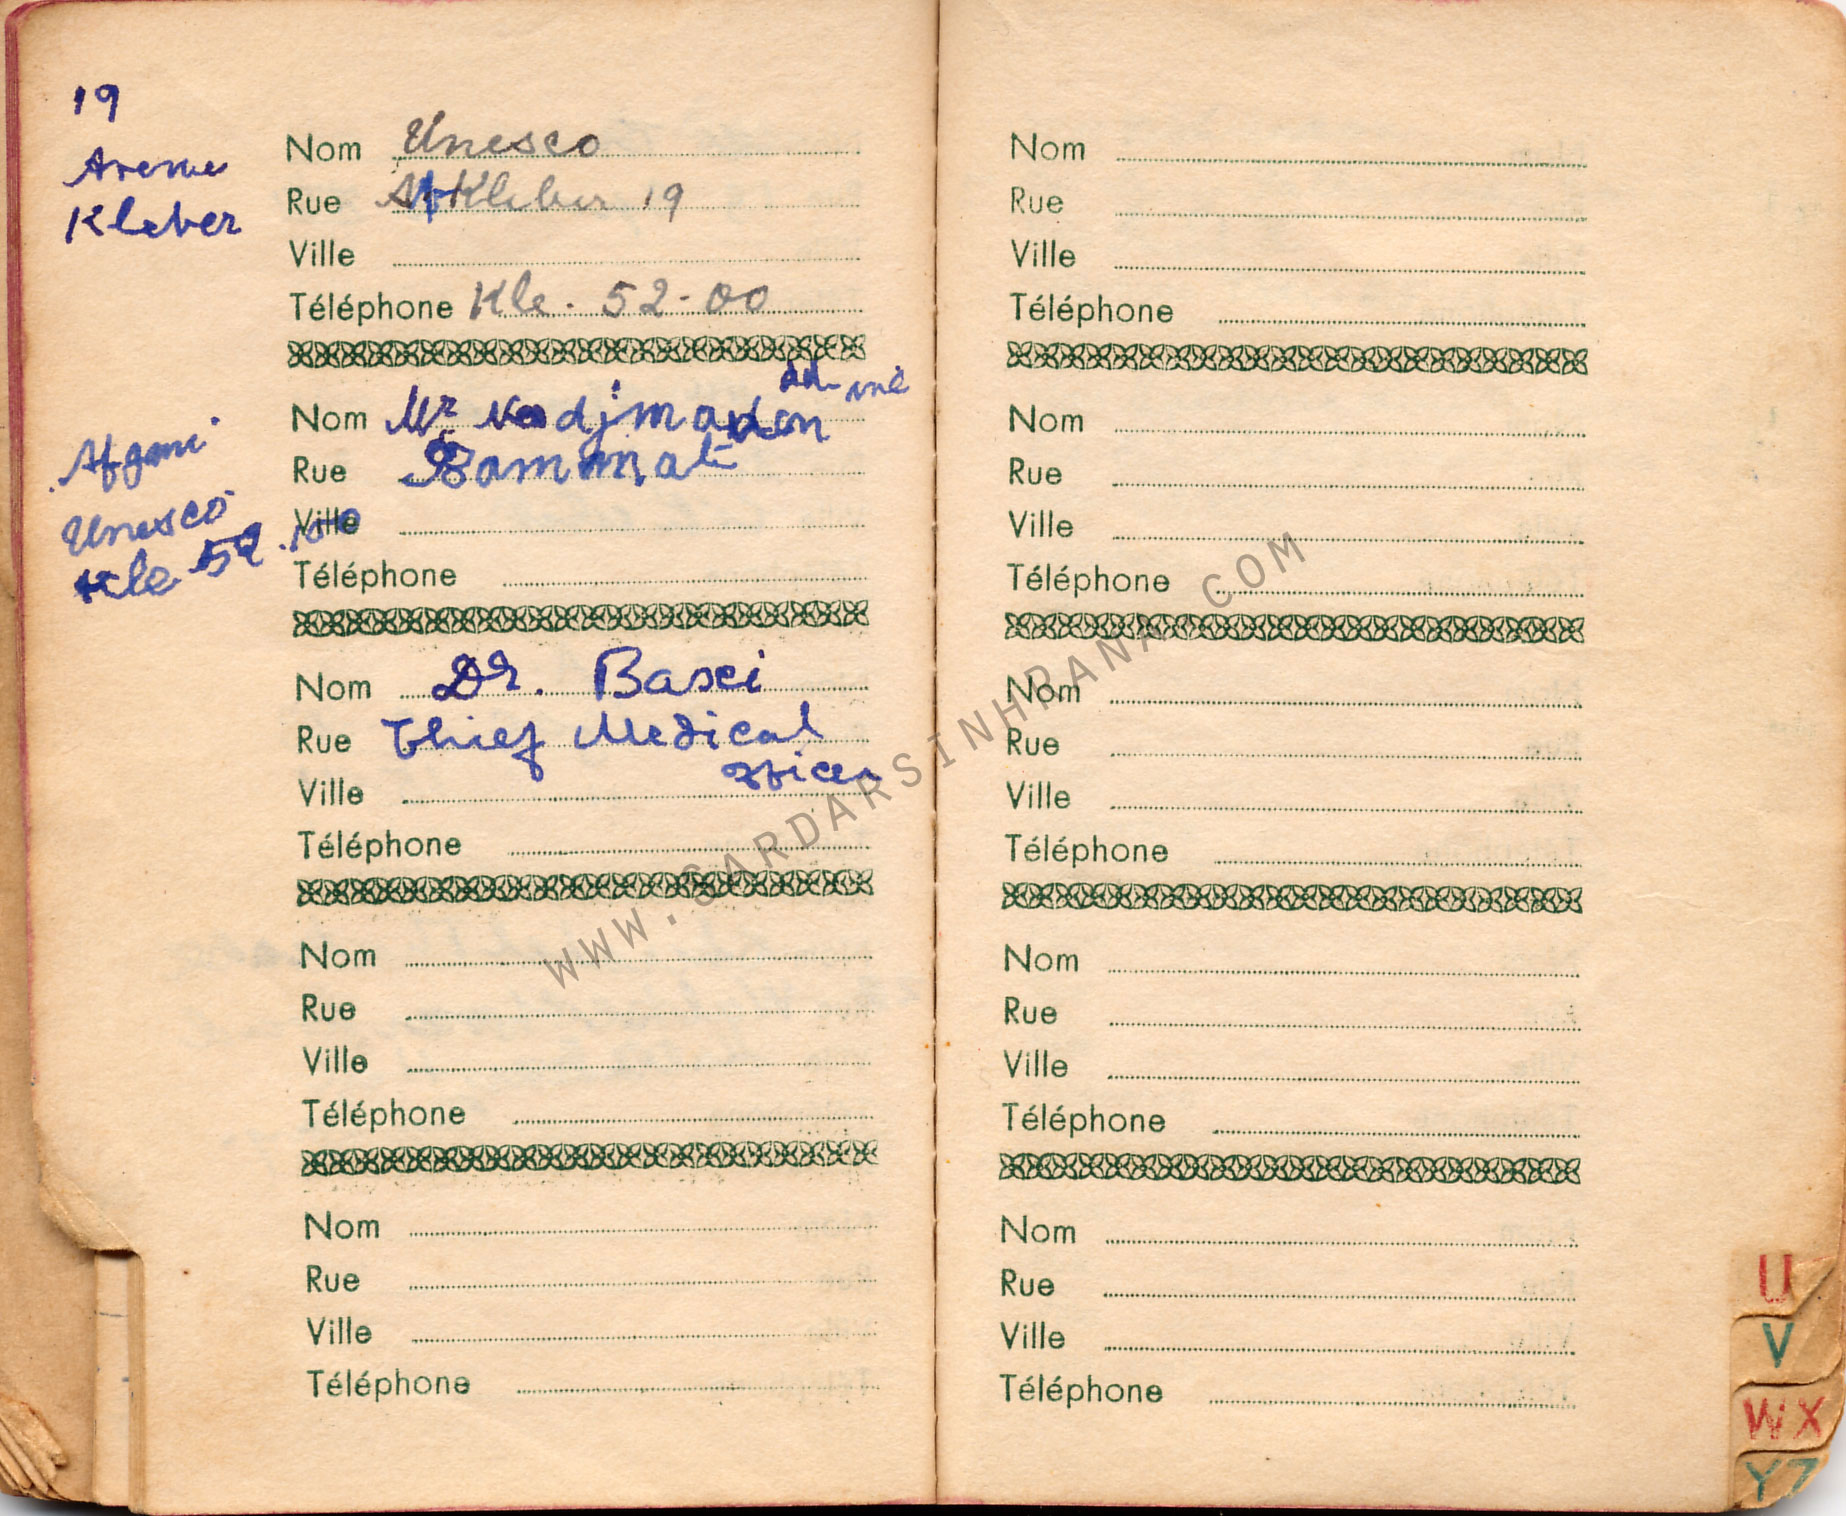 19
Avenue
Kleber
Nom Unesco
Rue Av Kleber 19
Ville
Téléphone Kle. 52-00
Nom Mr
Rue Bammat
Ville
Téléphone
Afgani
Unesco
Kle 52.00
Nom Dr. Basci
Rue Chief Medical
officer
Ville
Téléphone
Nom
Rue
Ville
Téléphone
Nom
Rue
Ville
Téléphone
Nom
Rue
Ville
Téléphone
Nom
Rue
Ville
Téléphone
Nom
Rue
Ville
Téléphone
Nom
Rue
Ville
Téléphone
Nom
Rue
Ville
Téléphone
U
V
WX
YZ
WWW.SARDARSINHRANA.COM